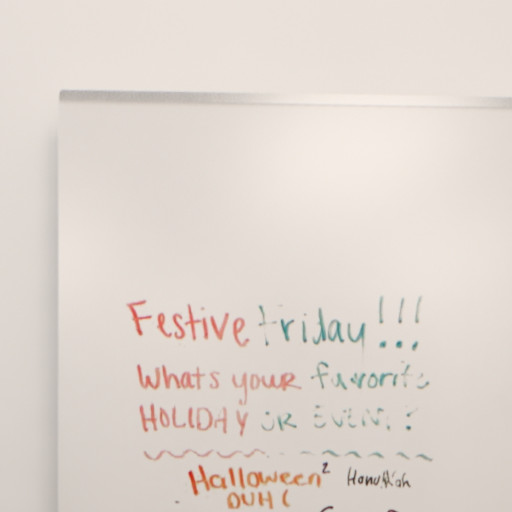 Festive Friday!!!
Whats your favorite
HOLIDAY OR EVENT?
Halloween²
DUH (